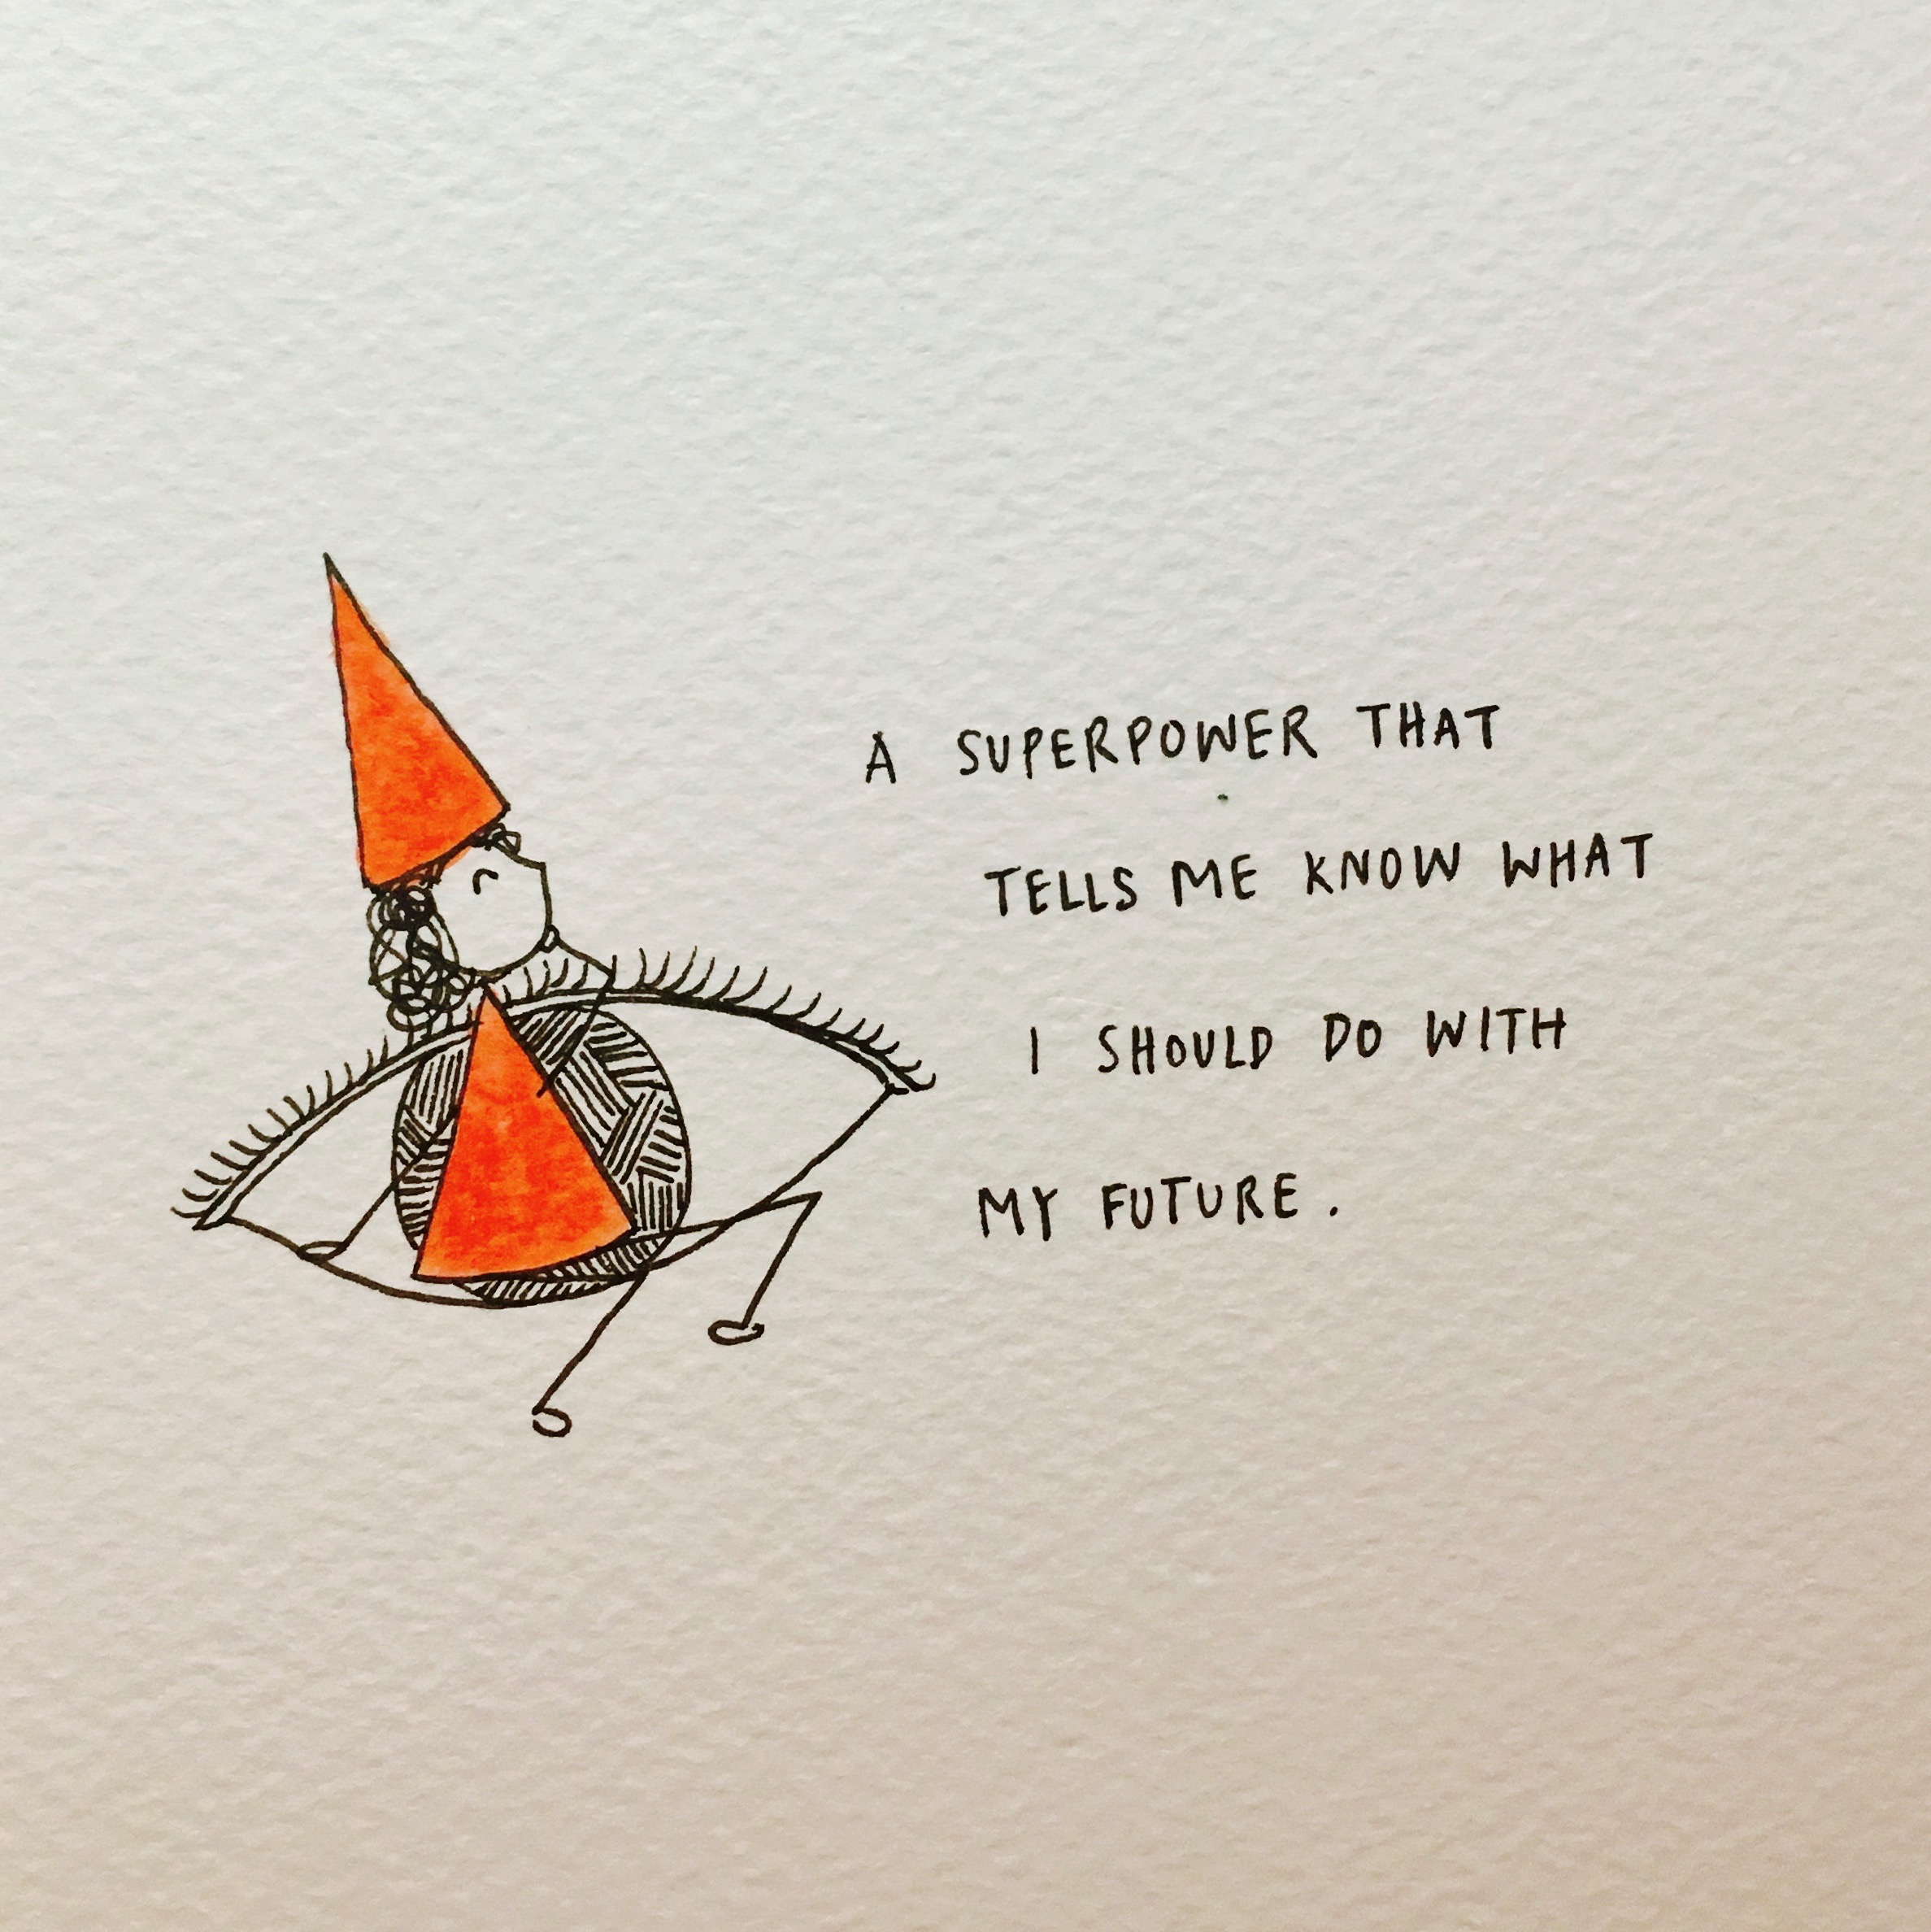 A SUPERPOWER THAT
TELLS ME KNOW WHAT
I SHOULD DO WITH
MY FUTURE.